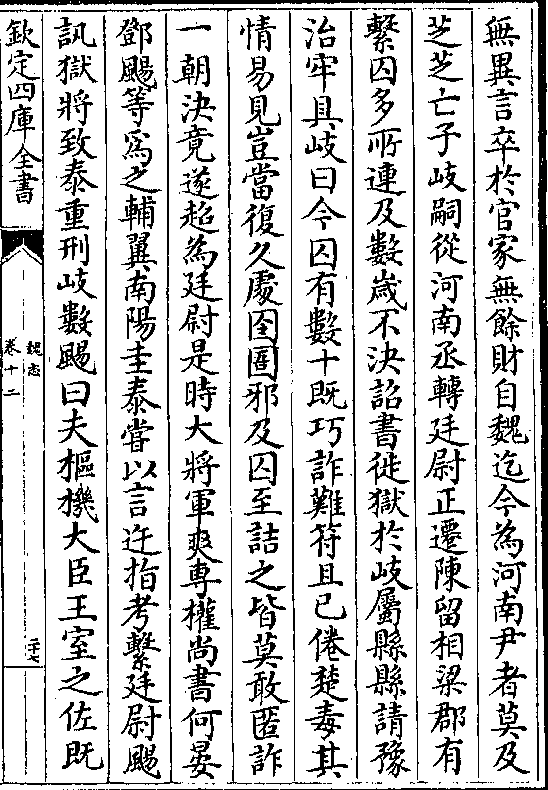 無異言卒於官家無餘財自魏迄今為河南尹者莫及
芝芝亡子岐嗣從河南丞轉廷尉正遷陳留相梁郡有
繫囚多所連及數歲不決詔書徙獄於岐屬縣縣請豫
治牢具岐曰今囚有數十既巧詐難符且已倦楚毒其
情易見豈當復久處囹圄邪及囚至詰之皆莫敢匿詐
一朝決竟遂超為廷尉是時大將軍爽專權尚書何晏
鄧颺等為之輔翼南陽圭泰嘗以言迕指考繫廷尉颺
訊獄將致泰重刑岐數颺曰夫樞機大臣王室之佐既
欽定四庫全書
魏志
卷十二
二十七